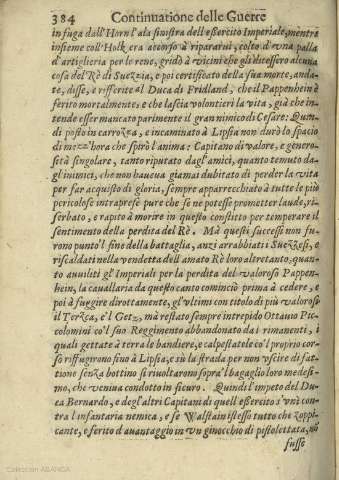 384 Continuatione delle Guerre
in fuga dall'Horn l'ala sinistra dell'esercito Imperiale, mentre
insieme coll'Holk era accorso à ripararui, colto d'vna palla
d'artiglieria per le rene, gridò à vicini che gli dicessero alcuna
cosa del Rè di Suezzia, e poi certificato della sua morte, anda-
te, disse, e rifferite al Duca di Fridland, che il Pappenheim è
ferito mortalmente, e che lascia volontieri la vita, già che in-
tende esser mancato parimente il gran nimico di Cesare: Quin-
di posto in carrozza, e incaminato à Lipsia non durò lo spacio
di mezz'hora che spirò l'anima: Capitano di valore, e genero-
sità singolare, tanto riputato dagl'amici, quanto temuto da-
gl'inimici, che non haueua giamai dubitato di perder la vita
per far acquisto di gloria, sempre apparrecchiato à tutte le più
pericolose intraprese pure che se ne potesse prometter laude, ri-
serbato, e rapito à morire in questo conflitto per temperare il
sentimento della perdita del Rè. Mà questi successi non fu-
rono punto'l fine della battaglia, anzi arrabbiati i Suezzesi, e
riscaldati nella vendetta dell'amato Rè loro altretanto, quan-
to auuiliti gl'Imperiali per la perdita del valoroso Pappen-
hein, la cauallaria da questo canto cominciò prima à cedere, e
poi à fuggire dirottamente, gl'vltimi con titolo di più valorosi
il Terzca, e'l Getz, mà restato sempre intrepido Ottauio Pic-
colomini co'l suo Reggimento abbandonato da i rimanenti, i
quali gettate à terra le bandiere, e calpestatele co'l proprio cor-
so riffugirono sino à Lipsia, e sù la strada per non vscire di fat-
tione senza bottino si riuoltarono sopra'l bagaglio loro medesi-
mo, che veniua condotto in sicuro. Quindi l'impeto del Du-
ca Bernardo, e degl'altri Capitani di quell'esercito s'vnì con-
tra l'infantaria nemica, e se Walstain istesso tutto che zoppi-
cante, e ferito d'auantaggio in vn ginocchio di pistolettata, nõ
fusse
Colección ABANCA